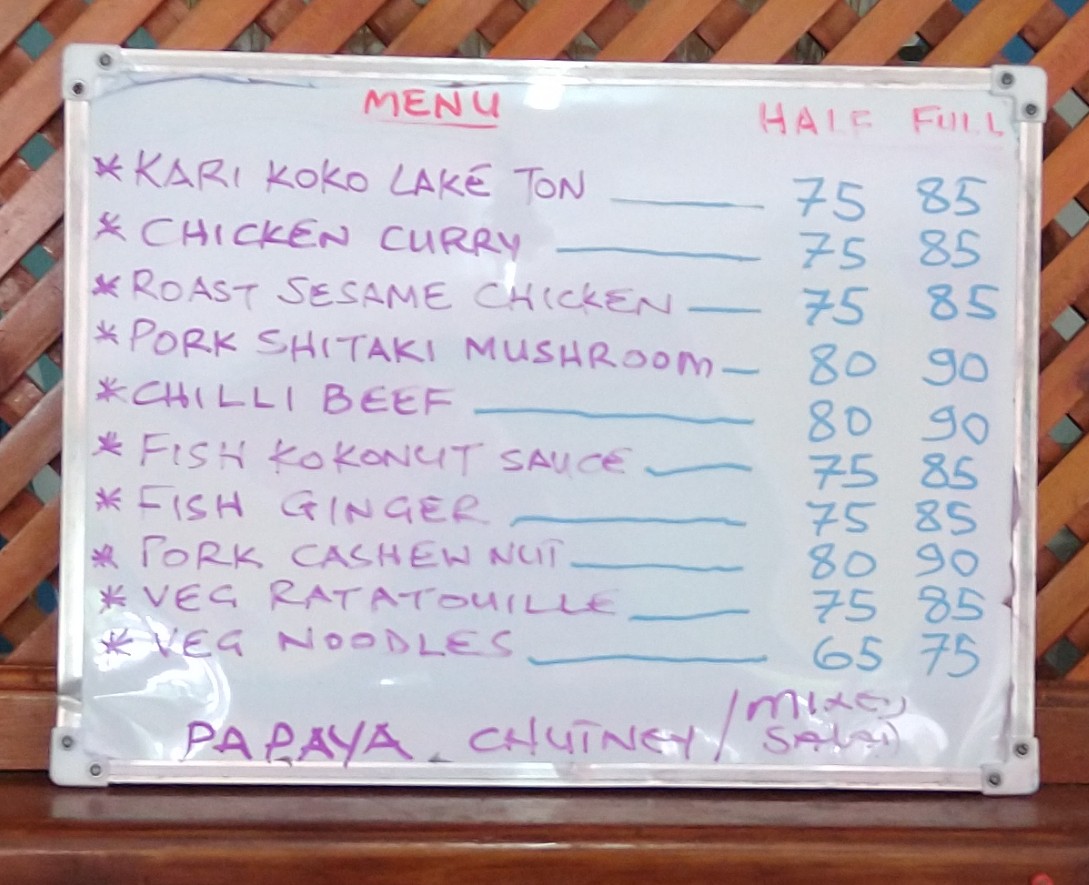 MENU HALF FULL
* KARI KOKO LAKE TON ______ 75 85
* CHICKEN CURRY ______ 75 85
* ROAST SESAME CHICKEN ___ 75 85
* PORK SHITAKI MUSHROOM _ 80 90
* CHILLI BEEF ______ 80 90
* FISH KOKONUT SAUCE ___ 75 85
* FISH GINGER ______ 75 85
* PORK CASHEW NUT ______ 80 90
* VEG RATATOUILLE ___ 75 85
* VEG NOODLES ______ 65 75
PAPAYA CHUTNEY / MIXED
SALAD